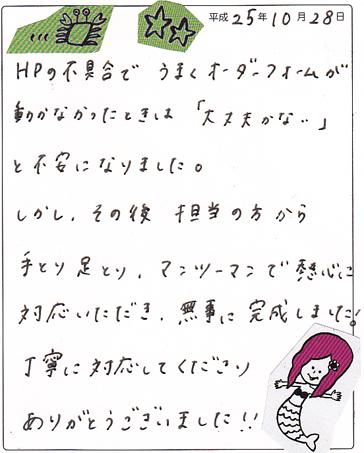 平成25年10月28日
HPの不具合で うまくオーダーフォームが
動かなかったときは 「大丈夫かな…」
と不安になりました。
しかし、その後 担当の方から
手とり足とり、マンツーマンで熱心に
対応いただき、無事に完成しました!
丁寧に対応してくださり
ありがとうございました!!